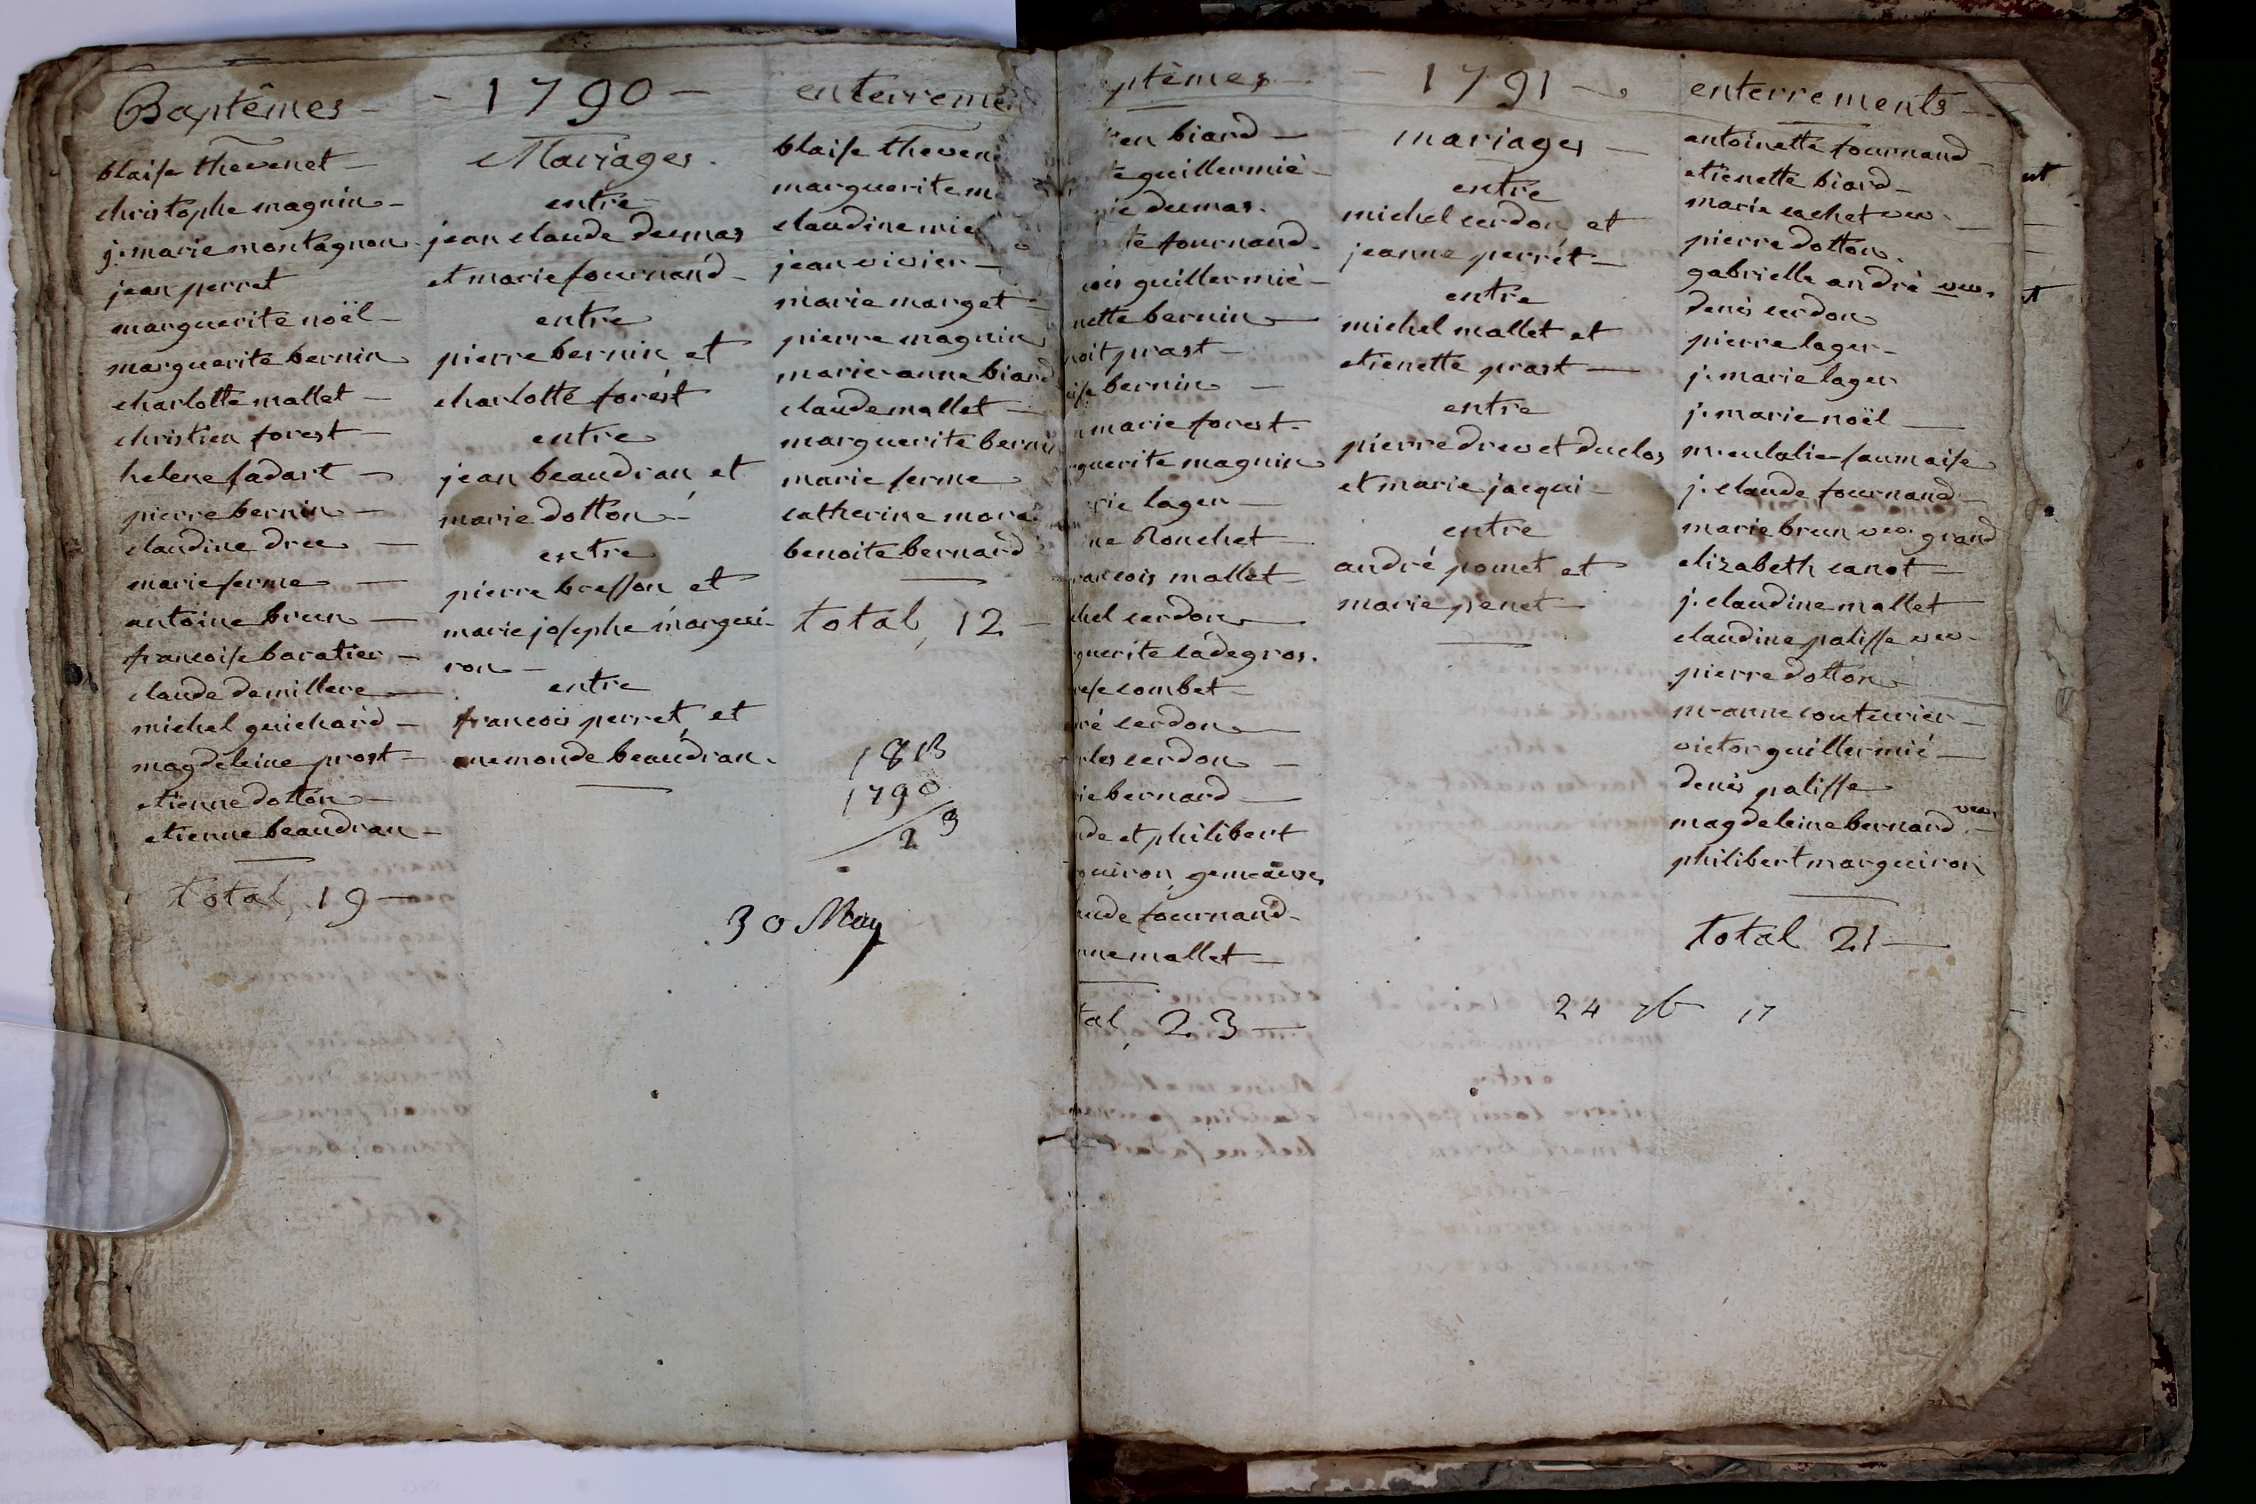 Baptêmes -
blaise thevenet -
christophe magnin -
j. marie montagnon
jean perret
marguerite noël -
marguerite bernin
charlotte mallet -
christien forest -
helene fadart -
pierre bernin -
claudine dree -
marie ferme -
antoine brun -
francoise baratier -
claude demillere -
michel guichard -
magdeleine prost -
etienne dotton -
etienne beaudran -
total, 19 -
- 1790 -
Mariages.
entre
jean claude dumas
et marie fournand -
entre
pierre bernin et
charlotte forest
entre
jean beaudran, et
marie dotton -
entre
pierre bresson et
marie josephe margui-
ron -
entre
francois perret, et
anemonde beaudran.
enterreme
blaise theven
marguerite m
claudine mie
jean vivier -
marie marget -
pierre magnin
marie-anne biard
claude mallet -
marguerite berni
marie ferme
catherine more
benoite bernard
total, 12 -
1813
1790
23
30 May
ptêmes -
en biard -
te guillermié -
ie dumas.
te fournand.
ois guillermié -
nette bernin -
noit prast -
ise bernin -
marie forest -
guerite magnin
rie lager -
ne Rouchet -
rancois mallet -
chel cerdon -
guerite cadegros.
ese combet -
ré cerdon -
rles cerdon -
ie bernard -
de et philibert
guiron, gemeaux
ude fournand -
nne mallet -
tal, 23 -
- 1791 -
mariages -
entre
michel cerdon, et
jeanne perret -
entre
michel mallet et
etienette prast -
entre
pierre drevet duclos
et marie jacqui -
entre
andré pomet et
marie penet -
enterrements -
antoinette fournand -
etienette biard -
marie cachet veu. -
pierre dotton.
gabrielle andré veu.
denis cerdon
pierre lager -
j. marie lager
j. marie noël -
m-eulalie saumaise
j. claude fournand -
marie brun veu. grand
elizabeth canot -
j. claudine mallet
claudine palisse veu -
pierre dotton -
m-anne couturier -
victor guillermié -
denis palisse
magdeleine bernard veu. -
philibert marguiron
total 21 -
24 7b 17